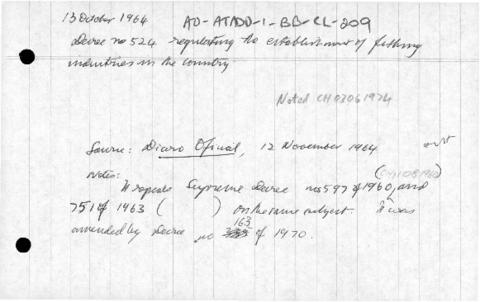 13 October 1964 AO-ATADD-1-BB-CL-209
Decree no 524 regulating the establishment of fishing
industries in the country
Noted CH03061974
Source: Diaro Oficial, 12 November 1964
Notes:
It repeals Supreme Decree nos 597 of 1960, and
751 of 1963 ( ) on the same subject. It was
163
amended by Decree no of 1970.